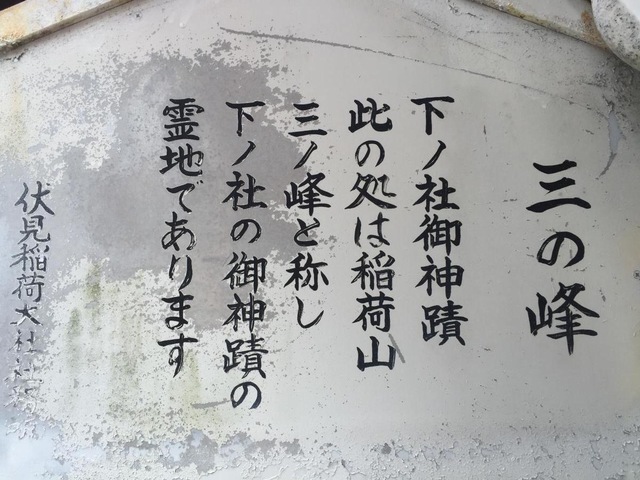 三の峰
下ノ社御神蹟
此の処は稲荷山
三ノ峰と称し
下ノ社の御神蹟の
霊地であります
伏見稲荷大社